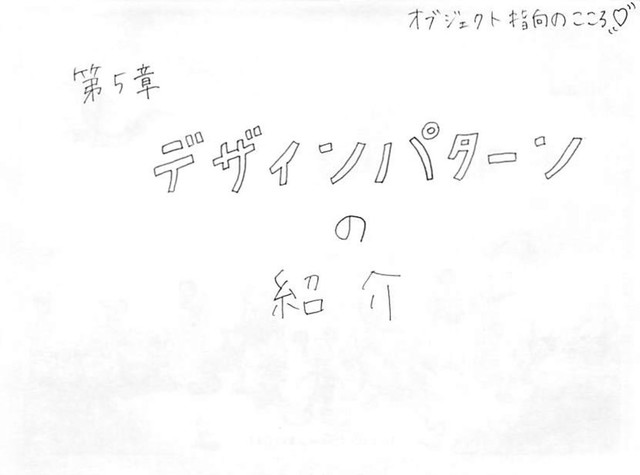 オブジェクト指向のこころ♡
第5章
デザインパターン
の
紹介